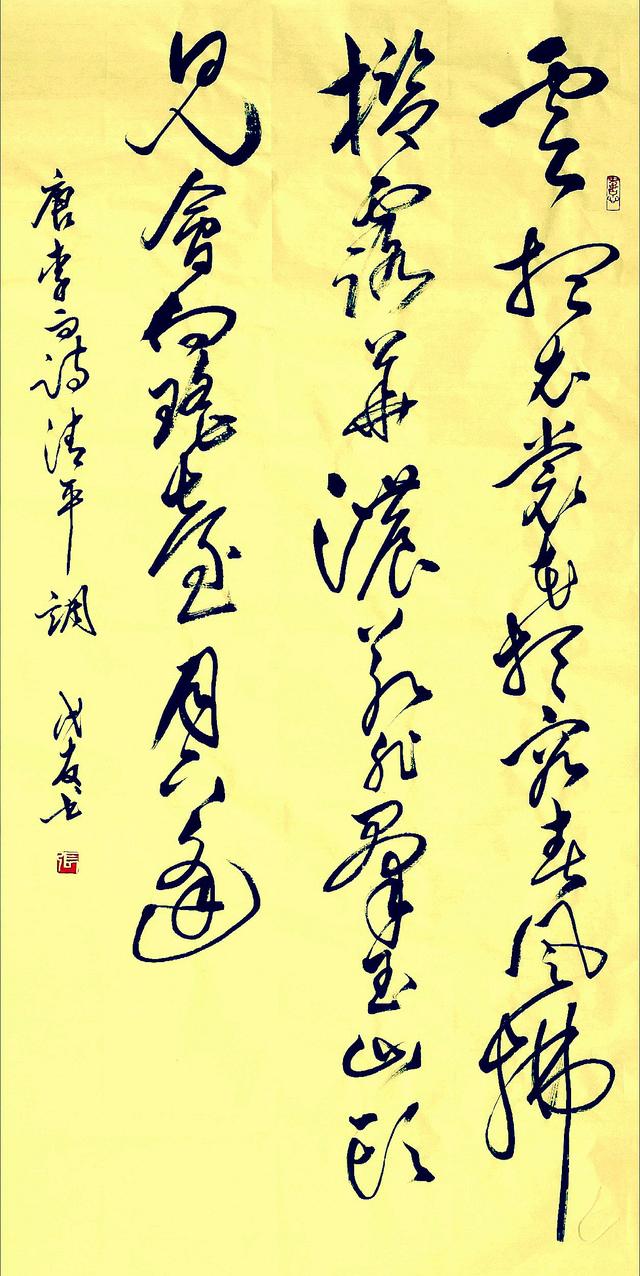 雲想衣裳花想容春風拂
檻露華濃若非羣玉山頭
見會向瑤臺月下逢
唐李白詩清平調